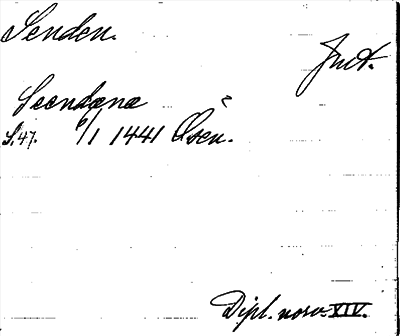 Senden.
Jmt.
Seendæna
S.47. 6/1 1441 Osen.
Dipl. norv. XIV.